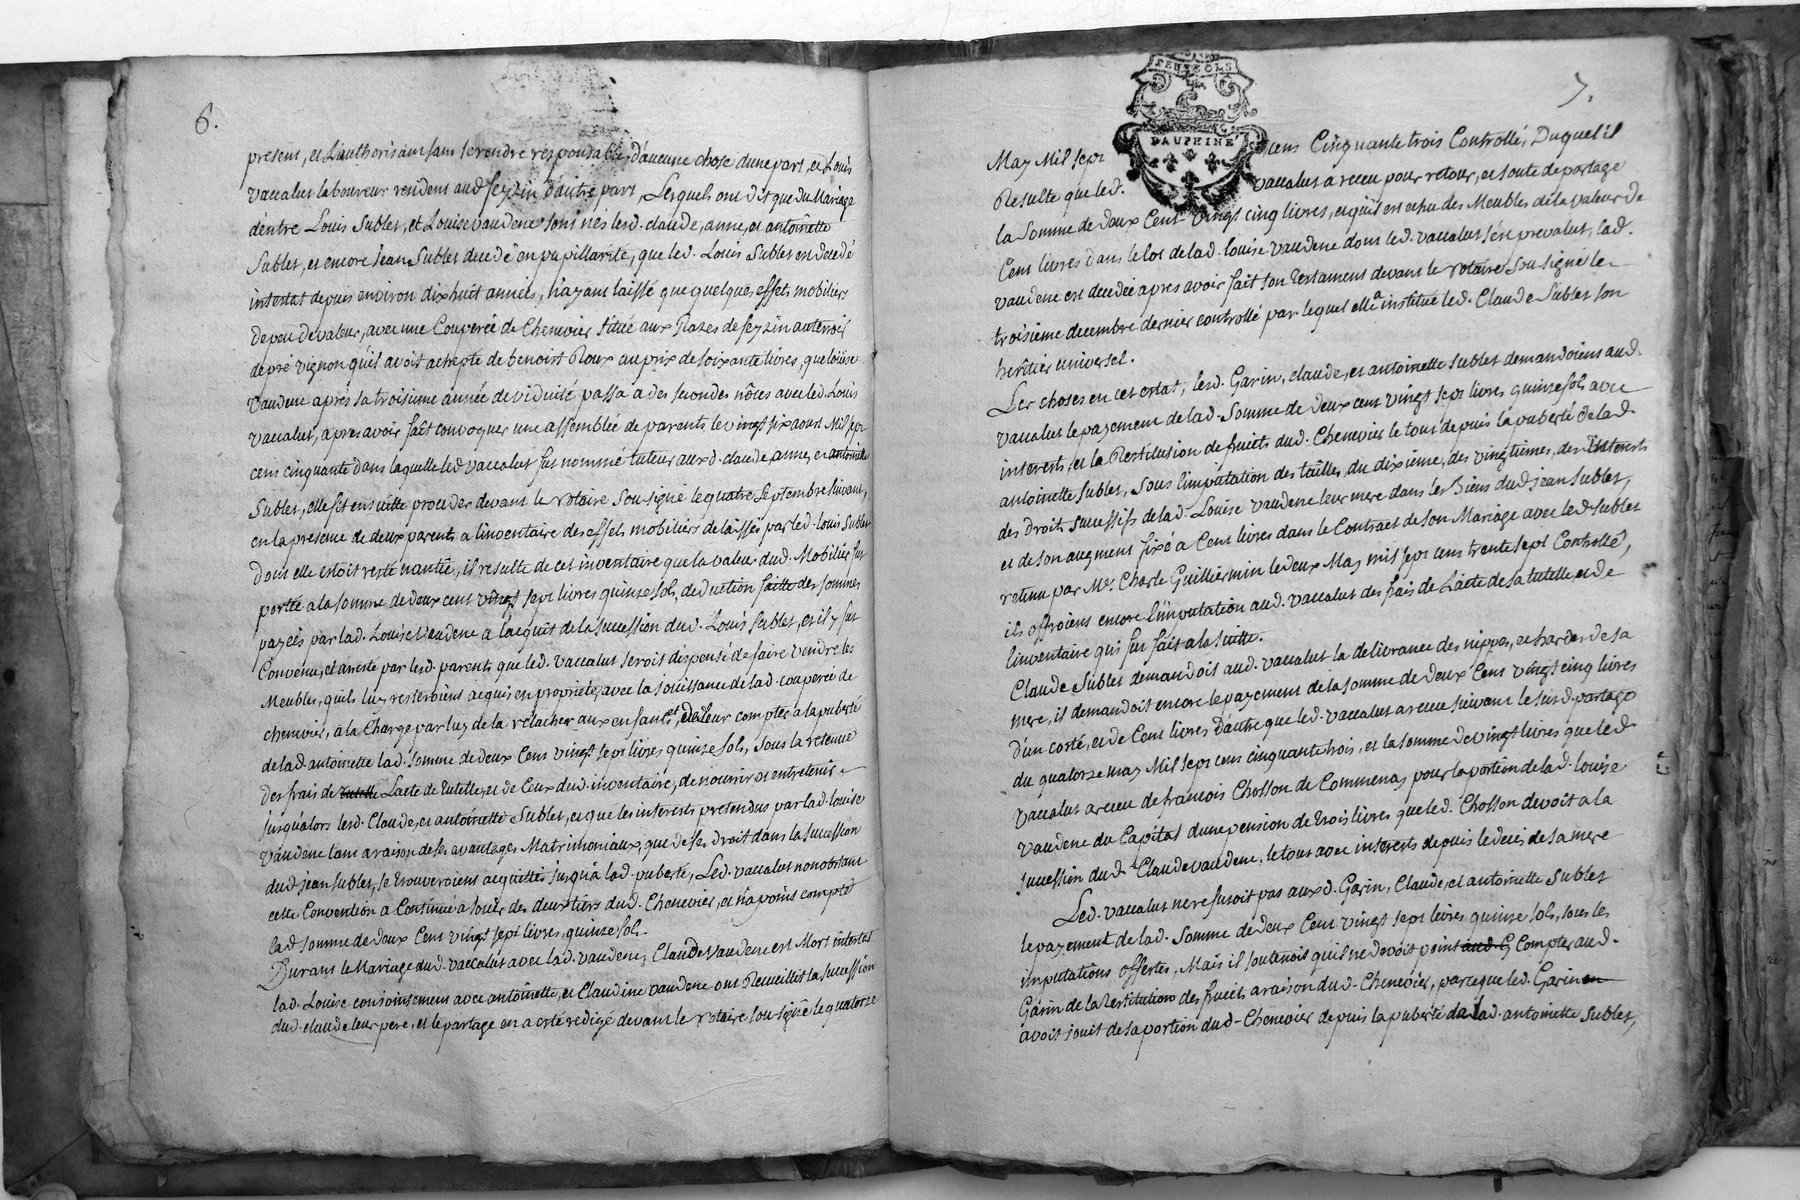 6.
present, et L'authorisant sans se rendre responsable d'aucune chose d'une part, et Louis
vaccalut laboureur resident aud. feyzin d'autre part, Lesquels ont dit que du Mariage
d'entre Louis Sublet, et Louise vaudene sont nés lesd. claude, anne, et antoinette
Sublet, et encore jean Sublet decedé en pupillarité, que led. Louis Sublet est decedé
intestat depuis environ dix huit années, n'ayant laissé que quelques effets mobiliers
de peu de valeur, avec une Couperée de Chenevier située aux Razes de feyzin au terroir
de pré vignon qu'il avoit acheptée de benoist Roux au prix de soixante livres, que louise
vaudene après sa troisieme année de viduité passa a des secondes nôces avec led. Louis
vaccalut, apres avoir fait convoquer une assemblée de parents le vingt six aoust Mil sept
cens cinquante dans laquelle led. vaccalut fut nommé tuteur auxd. claude, anne, et antoinette
Sublet, elle fit ensuitte proceder devant le Notaire Soussigné le quatre Septembre suivant,
en la presence de deux parents a l'inventaire des effets mobiliers delaissés par led. louis Sublet
dont elle estoit restée nantie, il resulte de cet inventaire que la valeur dud. Mobilier fut
portée a la somme de deux cent vingt sept livres quinze sols, deduction faitte des sommes
payées par lad. Louise Vaudene a l'acquit de la succession dud. Louis Sublet, et il y fut
Convenu, et arresté par lesd. parents que led. vaccalut seroit dispensé de faire vendre les
Meubles, qu'ils luy resteroient acquis en propriété, avec la jouissance de lad. couperée de
chenevier, a la Charge par luy de la relacher aux enfants, et de leur compter a la puberté
de lad. antoinette lad. somme de deux Cent vingt sept livres quinze sols, sous la retenue
des frais de tutelle L'acte de tutelle, et de Ceux dud. inventaire, de nourrir et entretenir
jusqu'alors lesd. Claude, et antoinette Sublet, et que les interests pretendus par lad. louise
vaudene tant a raison de ses avantages Matrimoniaux, que de ses droit dans la succession
dud. jean sublet, se trouveroient acquittés jusqu'a lad. puberté, Led. vaccalut nonobstant
cette Convention a Continué a jouir des deux tiers dud. Chenevier, et n'a point compté
lad. somme de deux Cent vingt sept livres, quinze sols.
Durant le Mariage dud. vaccalut avec lad. vaudene, Claude vaudene est Mort intestat
lad. Louise conjointement avec antoinette, et Claudine vaudene ont Recueilli la succession
dud. claude leur pere, et le partage en a esté redigé devant le Notaire soussigné le quatorze
7.
FEUX SOLS
DAUPHINÉ
May Mil sept cens Cinquante trois Controllé, Duquel il
Resulte que led. vaccalut a receu pour retour, et soute de partage
la somme de deux Cent vingt cinq livres, et qu'il est echu des Meubles de la valeur de
Cent livres dans le lot de lad. louise vaudene dont led. vaccalut s'est prevalut, lad.
vaudene est decedée apres avoir fait son Testament devant le Notaire soussigné le
troisieme decembre dernier controllé par lequel elle a institué led. Claude Sublet son
heritier universel.
Les choses en cet estat, lesd. Garin, claude, et antoinette Sublet demandoient aud.
vaccalut le payement de lad. Somme de deux cent vingt sept livres quinze sols avec
interests, et la Restitution de fruits dud. Chenevier le tout depuis la puberté de lad.
antoinette sublet, sous l'imputation des tailles, du dixieme, des vingtiemes, des interests
des droits successifs de lad. Louise vaudene leur mere dans les Biens dud. jean Sublet,
et de son augment fixé a Cent livres dans le Contract de son Mariage avec led. Sublet
retenu par Me. Charle Guilliermin le deux May mil sept cens trente sept Controllé,
ils offroient encore l'imputation aud. vaccalut des frais de L'acte de la tutelle, et de
l'inventaire qui fut fait a la suitte.
Claude Sublet demandoit aud. vaccalut la delivrance des nippes, et hardes de sa
mere, il demandoit encore le payement de la somme de deux Cent vingt cinq livres
d'un costé, et de Cent livres d'autre que led. vaccalut a receue suivant le susd. partage
du quatorze may Mil sept cens cinquante trois, et la somme de vingt livres que led.
vaccalut a receu de francois Chosson de Commenay pour la portion de lad. louise
vaudene du Capital d'une pension de trois livres que led. Chosson devoit a la
succession dud. Claude vaudene, le tout avec interests depuis le decés de sa mere
Led. vaccalut ne refusoit pas auxd. Garin, Claude, et antoinette Sublet
le payement de lad. Somme de deux Cent vingt sept livres quinze sols, sous les
imputations offertes, Mais il soutenoit qu'il ne devoit point aud. G Compter aud.
Garin de la Restitution des fruits a raison dud. Chenevier, parceque led. Garin en
avoit jouit de sa portion dud. Chenevier depuis la puberté de lad. antoinette Sublet,